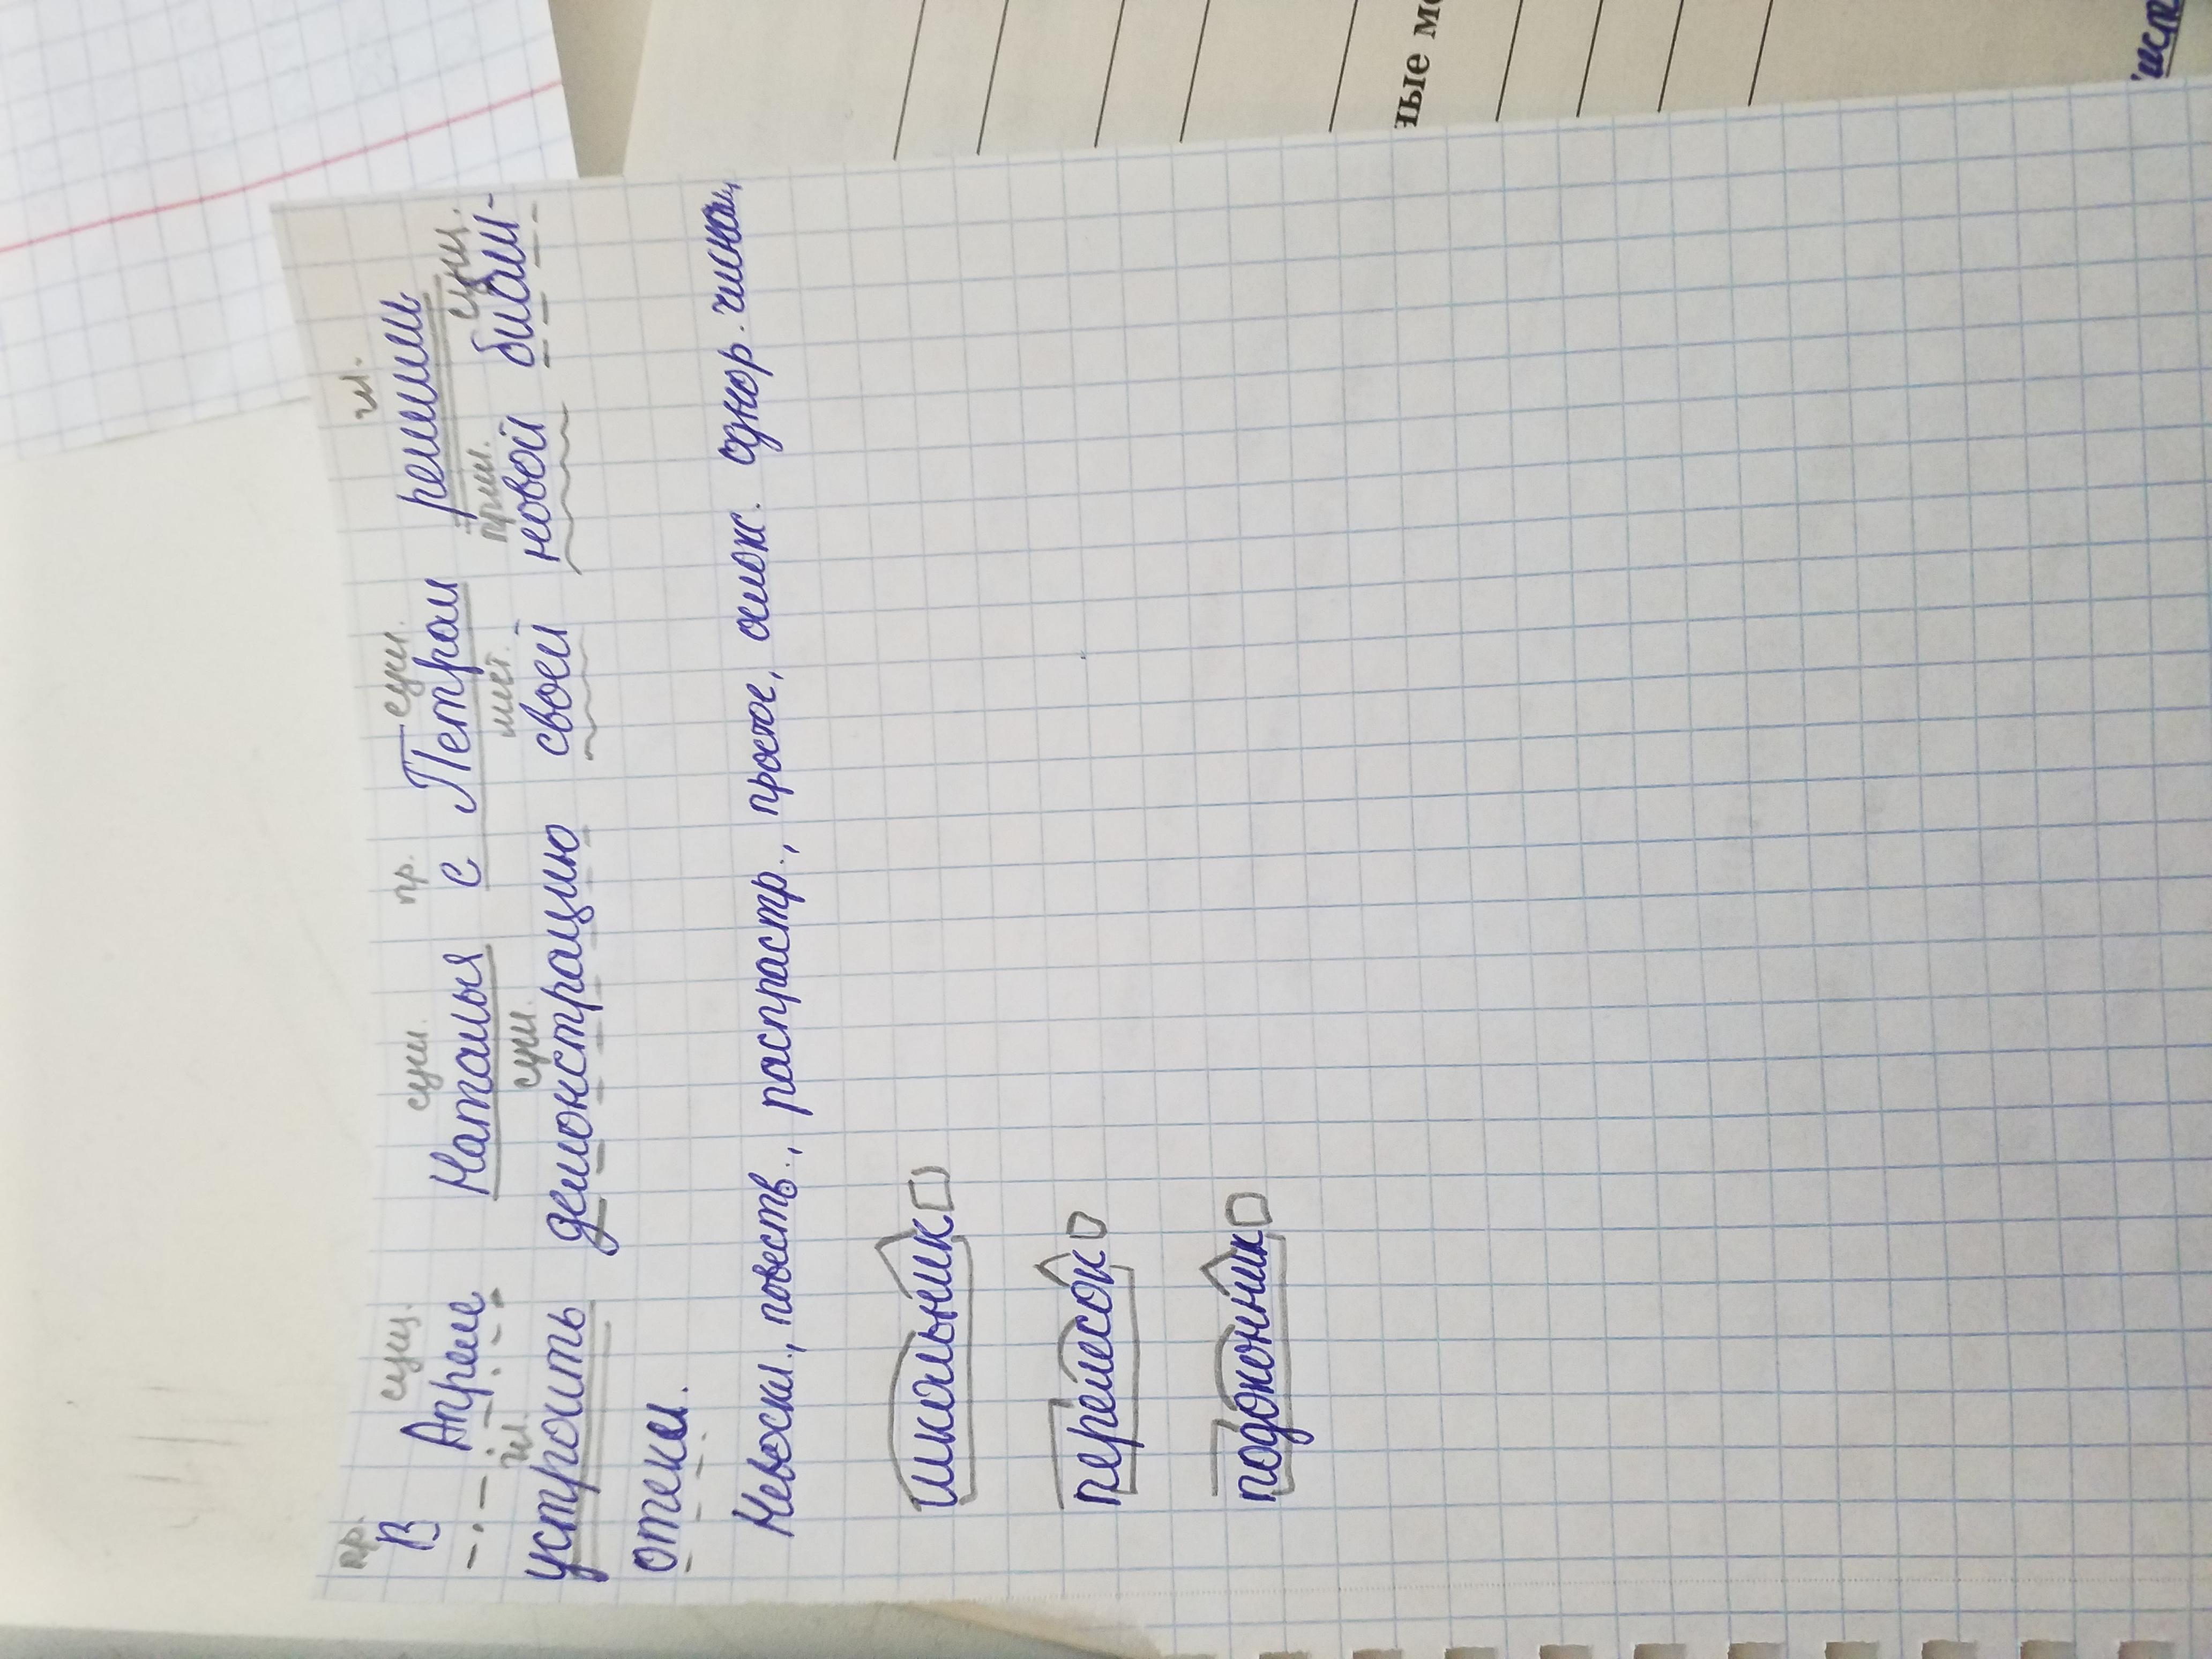 пр. сущ. сущ. пр. сущ. гл.
В Апреле Наталья с Петром решили
гл. сущ. мест. прил. сущ.
устроить демонстрацию своей новой библи-
отеки.
Невоскл., повеств., распрастр., простое, ослож. однор. членам,
школьник
перелесок
подоконник
ные м